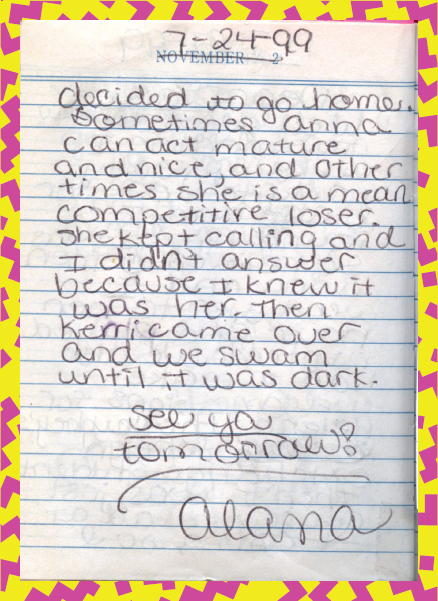 7-24-99
NOVEMBER 2
decided to go home.
Sometimes anna
can act mature
and nice, and other
times she is a mean
competitive loser.
She kept calling and
I didn't answer
because I knew it
was her. Then
Kerri came over
and we swam
until it was dark.
see ya
tomorrow!
alana